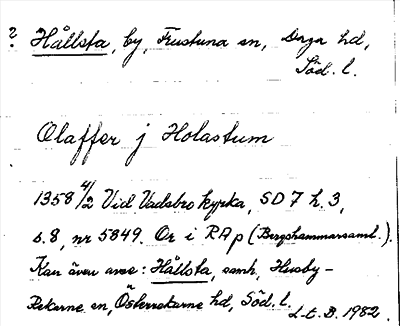 ? Hållsta, by, Frustuna sn, Daga hd,
Söd. l.
Olaffer j Holastum
1358 4/2 Vid Vadsbro kyrka, SD 7 h. 3,
s. 8, nr 5849. Or i RAp (Bergshammarsaml.).
Kan även avse: Hållsta, samh, Husby-
Rekarne sn, Österrekarne hd, Söd. l.
L.E.B. 1982